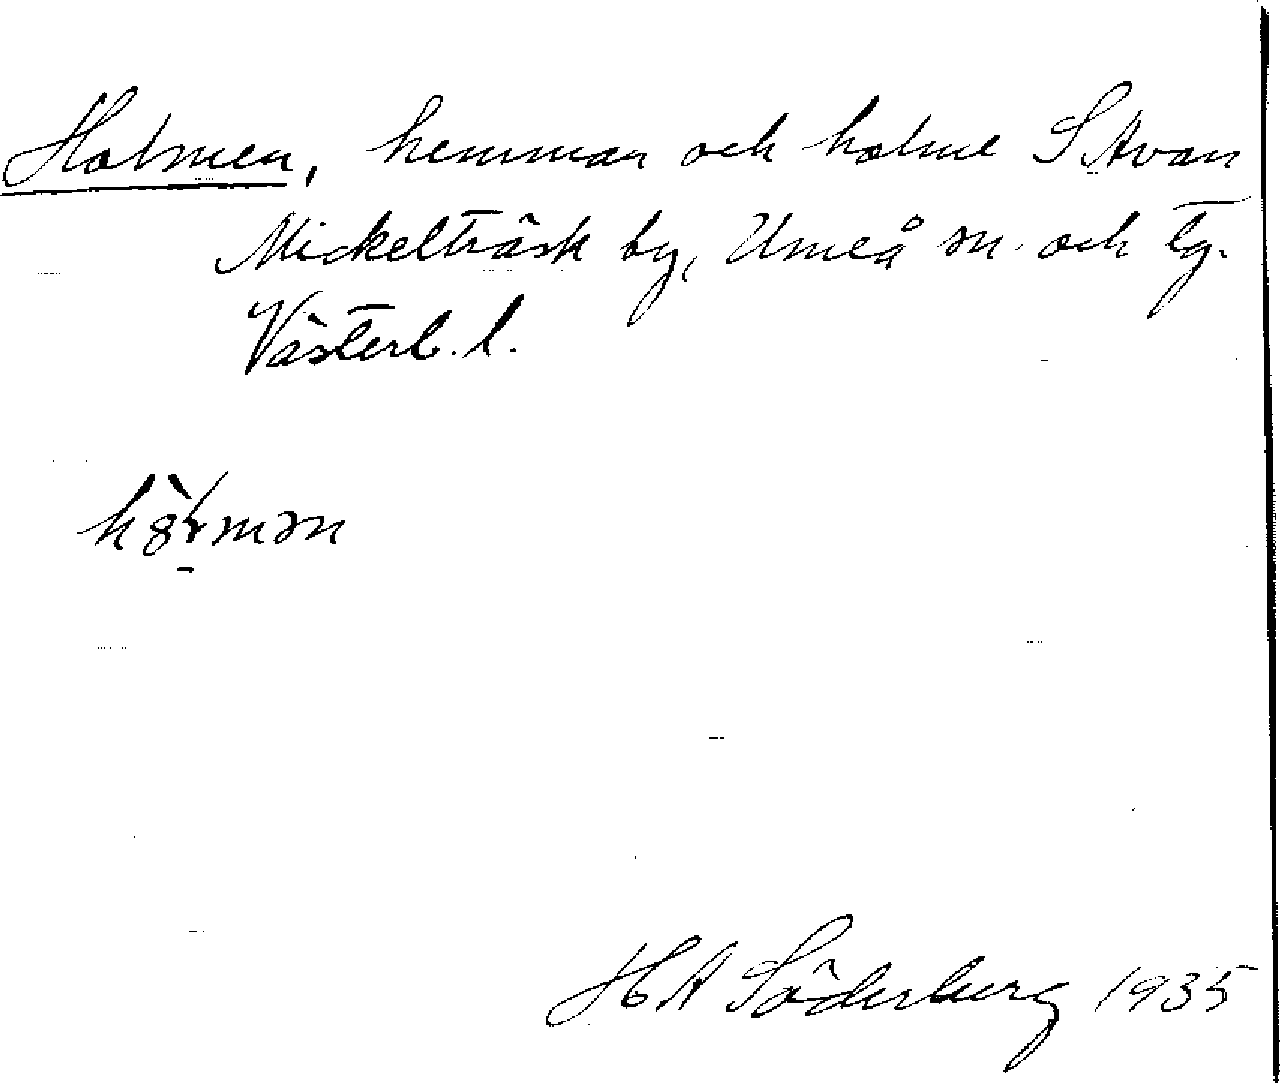 Holmen, hemman och holme S Avan
Mickelträsk by, Umeå sn. och tg.
Västerb. l.
H A Söderberg 1935